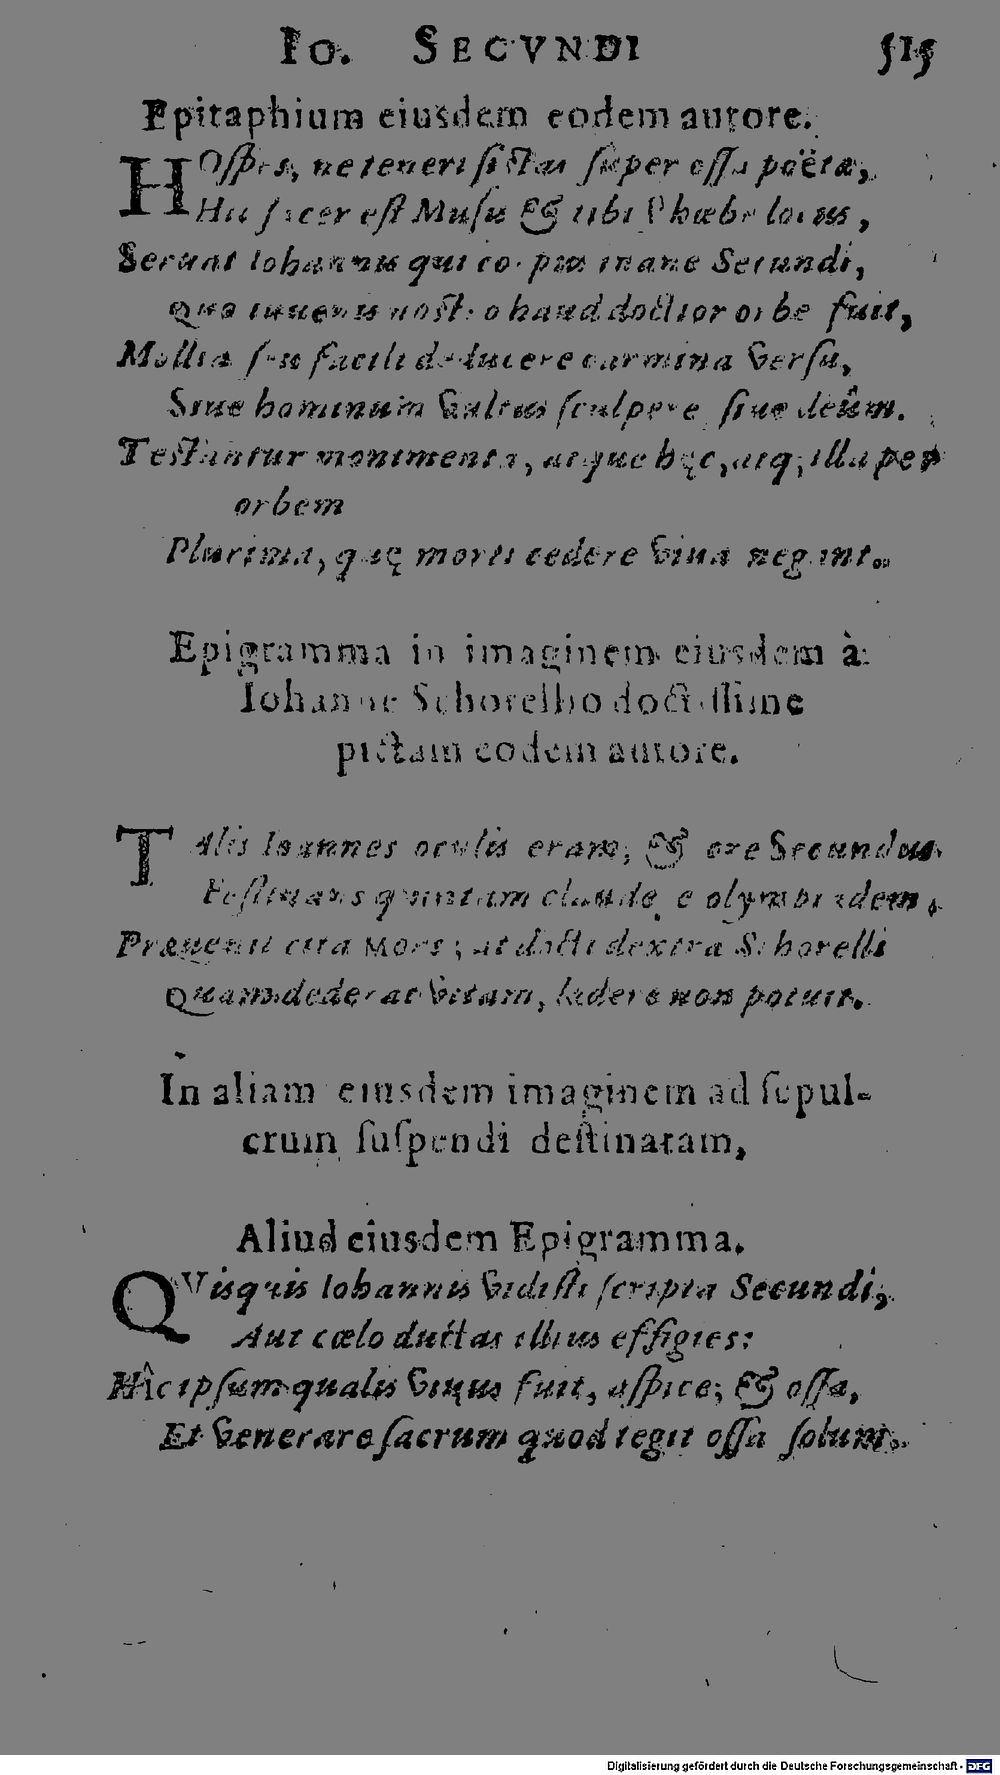 IO. SECVNDI 515
Epitaphium eiusdem eodem autore.
HOſpes, ne teneri ſiſtas ſuper oſſa poëtæ,
Hic ſacer eſt Muſis & tibi Phœbe locus,
Seruat Iohannis qui corpus inane Secundi,
Quo iuuenis noſtro haud doctior orbe fuit,
Mollia ſeu facili deducere carmina verſu,
Siue hominum vultus ſculpere, ſiue deûm.
Teſtantur monimenta, atque hęc, atq; illa per
orbem
Plurima, quę morti cedere viua negant.
Epigramma in imaginem eiusdem à
Iohanne Schorellio doctiſſime
pictam eodem autore.
TAlis Ioannes oculis eram, & ore Secundus
Feſtinans quintam claudere olympiadem,
Præuenit cita Mors; at docti dextra Schorelli
Quam dederat vitam, lædere non potuit.
In aliam eiusdem imaginem ad ſepul-
crum ſuſpendi deſtinatam,
Aliud eiusdem Epigramma.
QVisquis Iohannis vidiſti ſcripta Secundi,
Aut cœlo ductas illius effigies:
Hîc ipſum qualis viuus fuit, aſpice; & oſſa,
Et venerare ſacrum quod tegit oſſa ſolum.
Digitalisierung gefördert durch die Deutsche Forschungsgemeinschaft - DFG